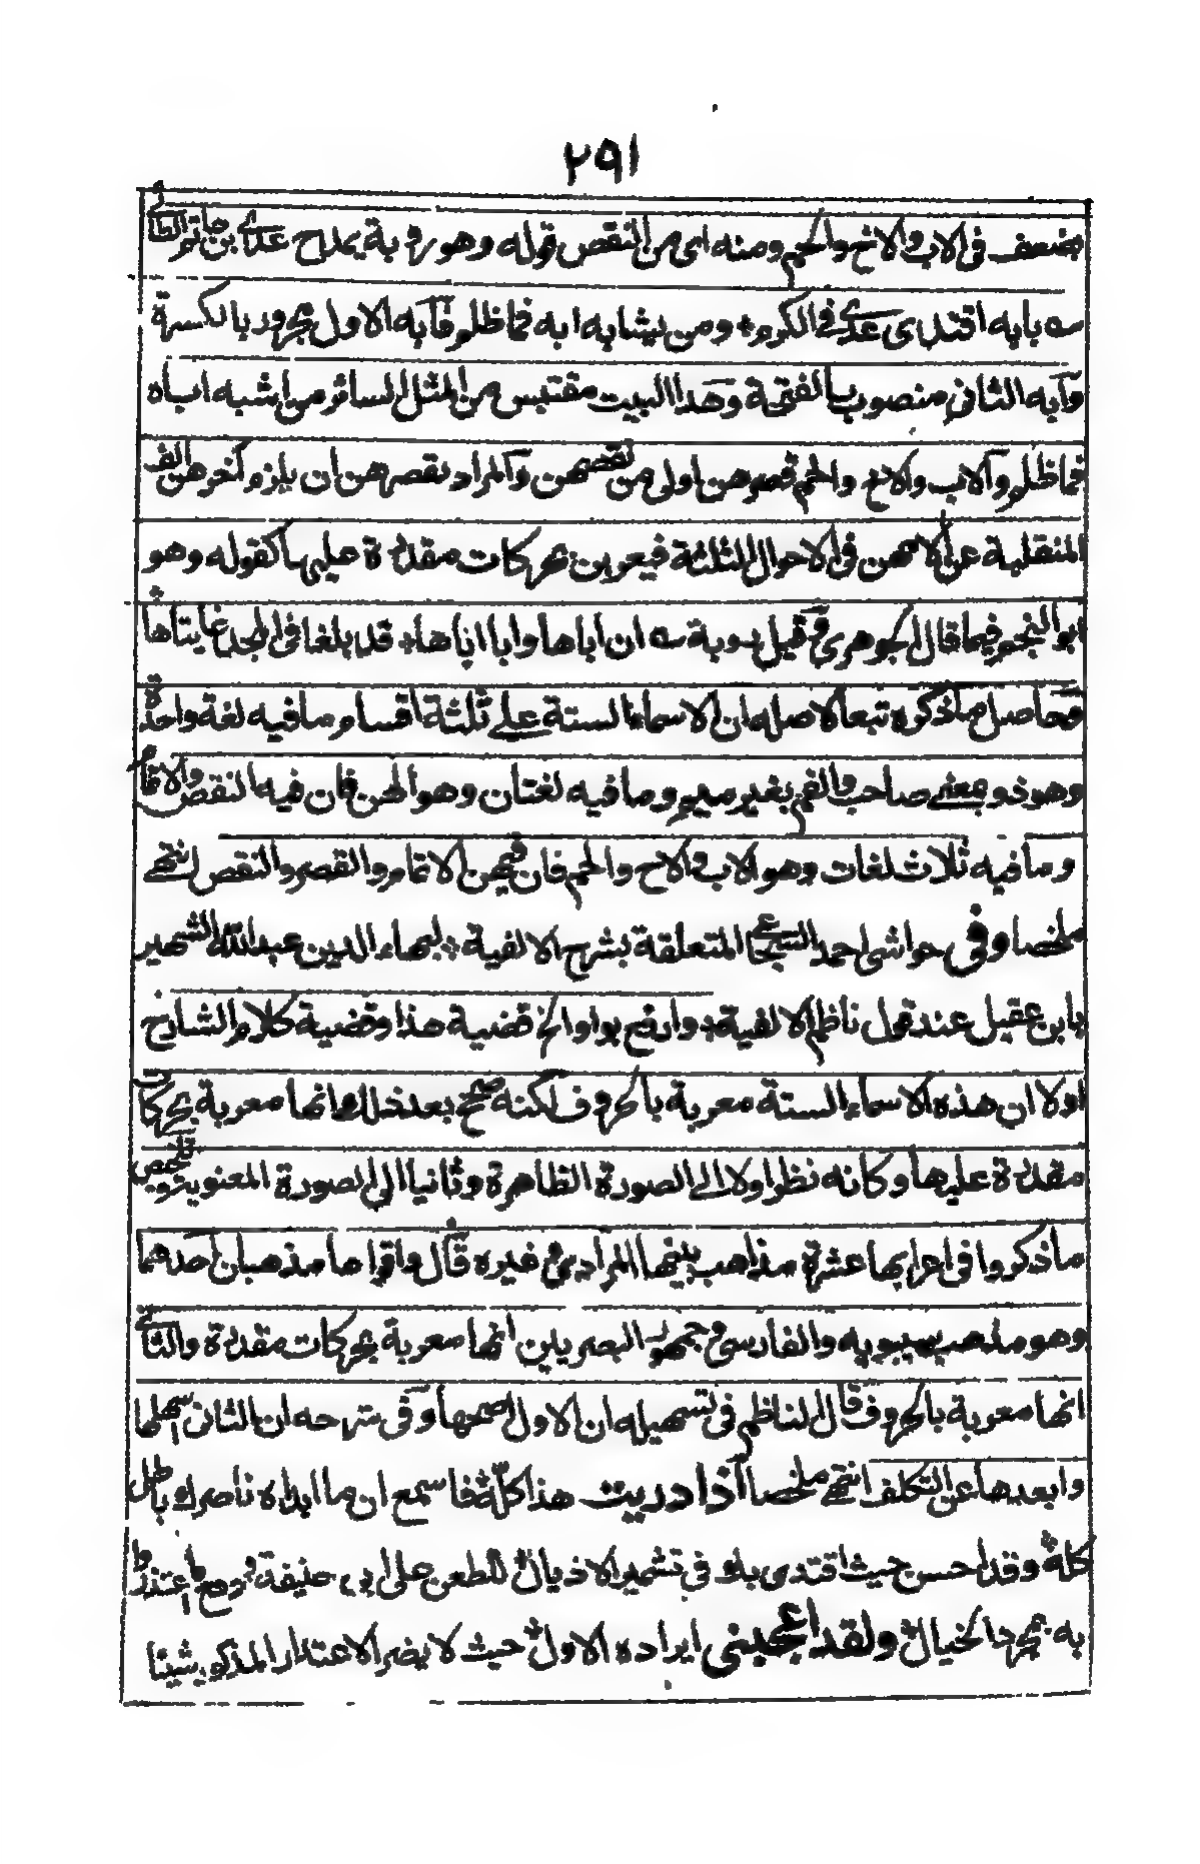 ٢٩١
مضعف فى الاب والاخ والحم ومنه اى من النقص قوله وهو روبة يمدح عدى بن حاتم الطائى
ــه بابه اقتدى عدى فى الكرم ومن يشابه ابه فما ظلم فابه الاول مجرور بالكسرة
وابه الثانى منصوب بالفتحة وهذا البيت مقتبس من المثل السائر من اشبه اباه
فما ظلم والاب والاخ والحم قصرهن اولى من نقصهن والمراد بقصرهن ان يلزم آخرهن الف
المنقلبة عن لامهن فى الاحوال الثلثة فيعربن بحركات مقدرة عليها كقوله وهو
ابو النجم فيما قال الجوهرى وقيل روبة ــه ان اباها وابا اباها قد بلغا فى المجد غايتاها
فحاصل ما ذكره تبعا لاصله ان الاسماء الستة على ثلثة اقسام ما فيه لغة واحدة
وهو ذو بمعنى صاحب والفم بغير ميم وما فيه لغتان وهو الهن فان فيه النقص والاتمام
وما فيه ثلاث لغات وهو الاب والاخ والحم فان فيهن الاتمام والقصر والنقص انتهى
ملخصا وفى حواشى احمد السجاعى المتعلقة بشرح الالفية لبهاء الدين عبدالله الشهير
بابن عقيل عند قول ناظم الالفية وارفع بواو الخ قضية هذا وقضية كلام الشارح
اولا ان هذه الاسماء الستة معربة بالحروف لكنه صحح بعد ذلك انها معربة بحركات
مقدرة عليها وكانه نظر اولا الى الصورة الظاهرة وثانيا الى الصورة المعنوية وتلخيص
ما ذكروا فى اعرابها عشرة مذاهب بينها المرادى وغيره قال واقواها مذهبان احدهما
وهو مذهب سيبويه والفارسى وجمهور البصريين انها معربة بحركات مقدرة والثانى
انها معربة بالحروف قال الناظم فى تسهيله ان الاول اصحها وفى شرحه ان الثانى اسهلها
وابعدها عن التكلف انتهى ملخصا اذا دريت هذا كله فاسمع ان ما ابداه ناصرك باطل
كله وقد احسن حيث اقتدى بك فى تشمير الاذيال للطعن على ابى حنيفة ودفع ما اعتذروا
به بمجرد الخيال ولقد اعجبنى ايراده الاول حيث لا يضر الاعتذار المذكور شيئا